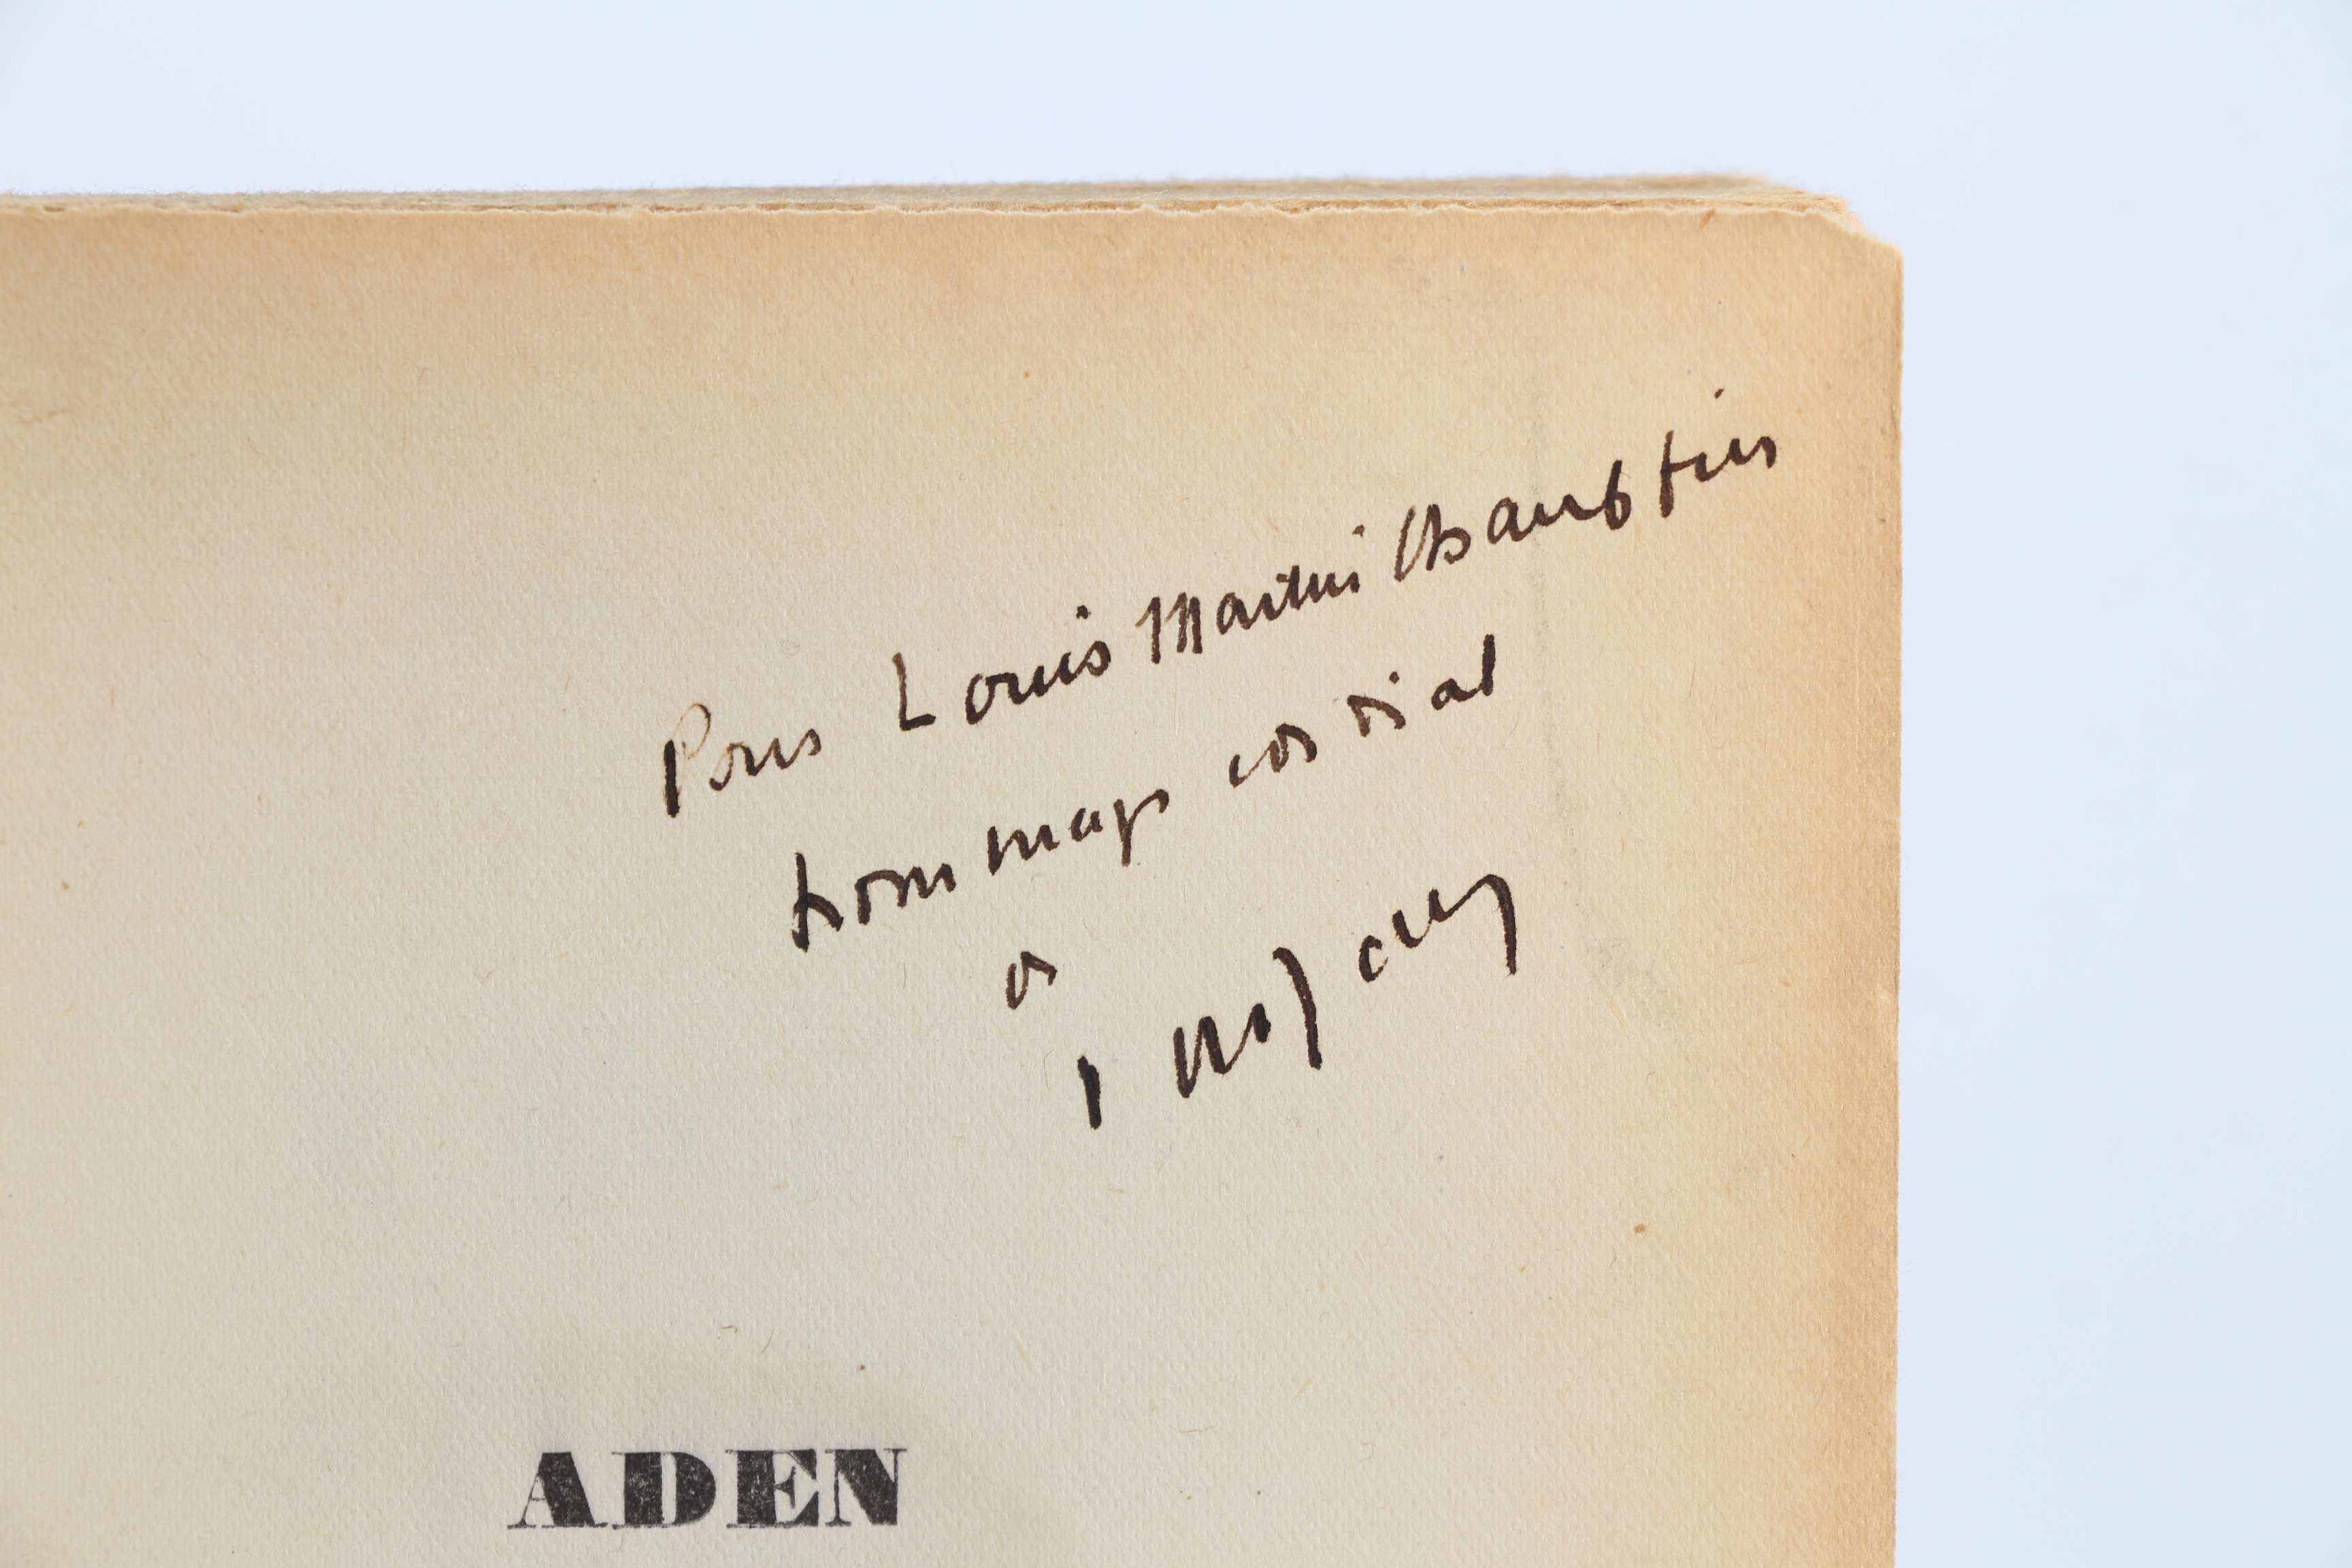 Pour Louis Martin Chauffier
hommage cordial
de
P Nizan
ADEN